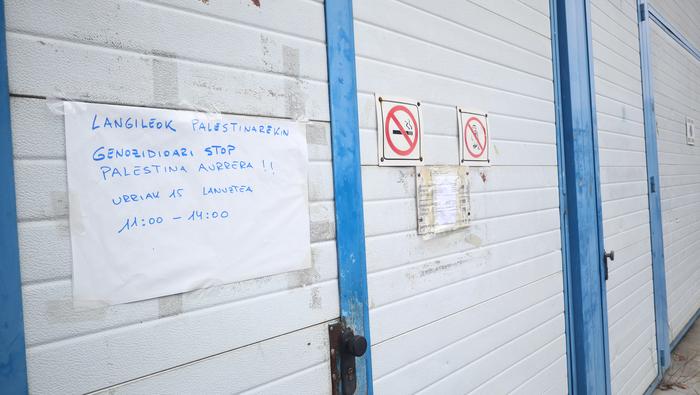 LANGILEOK PALESTINAREKIN
GENOZIDIOARI STOP
PALESTINA AURRERA !!
URRIAK 15 LANUZTEA
11:00 – 14:00